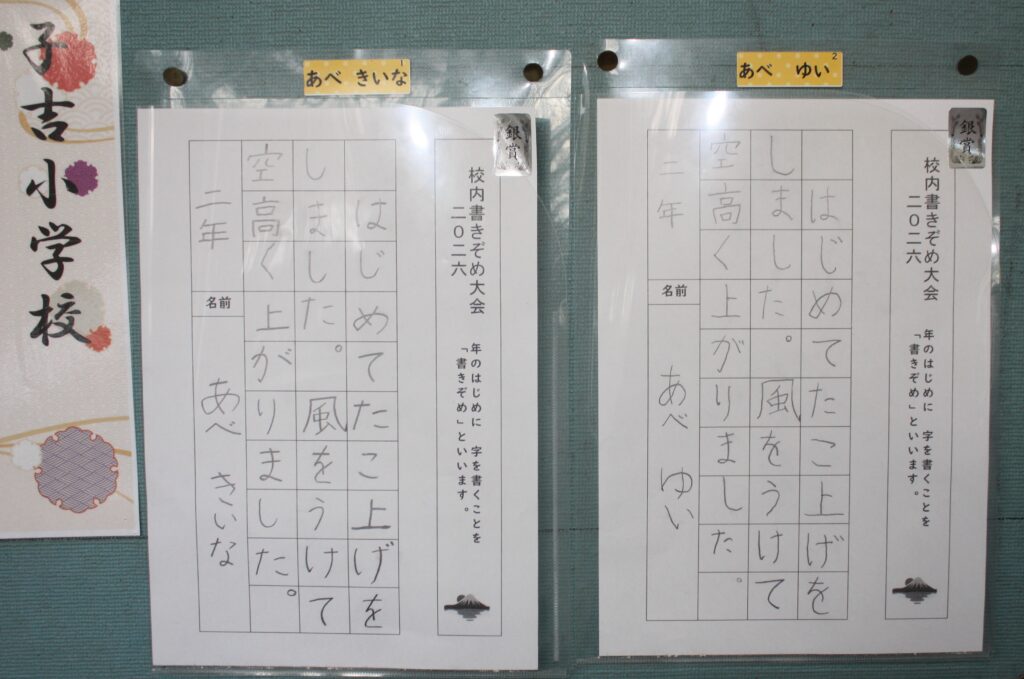 子吉小学校
あべ きいな
1
銀賞
校内書きぞめ大会
二〇二六
年のはじめに 字を書くことを
「書きぞめ」といいます。
　はじめてたこ上げを
しました。風をうけて
空高く上がりました。
二年
名前
あべ きいな
あべ ゆい
2
銀賞
校内書きぞめ大会
二〇二六
年のはじめに 字を書くことを
「書きぞめ」といいます。
　はじめてたこ上げを
しました。風をうけて
空高く上がりました。
二年
名前
あべ ゆい